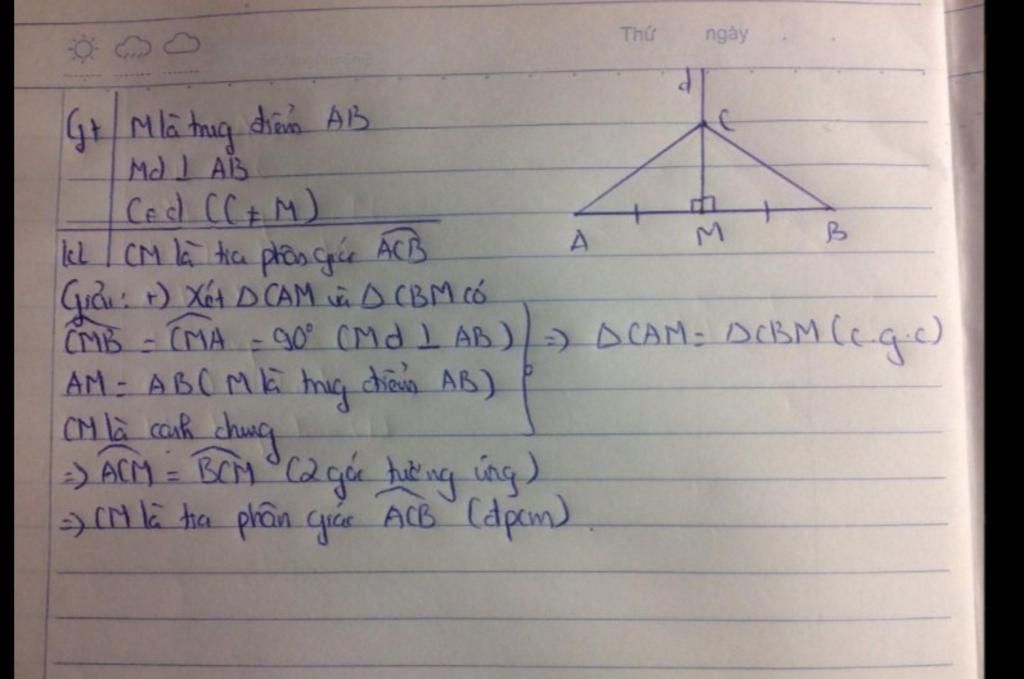 Thứ ngày . .
d
C
A M B
Gt M là trug điểm AB
Md ⊥ AB
C ∈ d (C ≠ M)
kl CM là tia phân giác ACB
Giải: +) Xét ΔCAM và ΔCBM có
CMB = CMA = 90° (Md ⊥ AB)
AM = AB (M là trug điểm AB)
CM là cạnh chung
=> ΔCAM = ΔCBM (c.g.c)
=> ACM = BCM (2 góc tương ứng)
=> CM là tia phân giác ACB (đpcm)